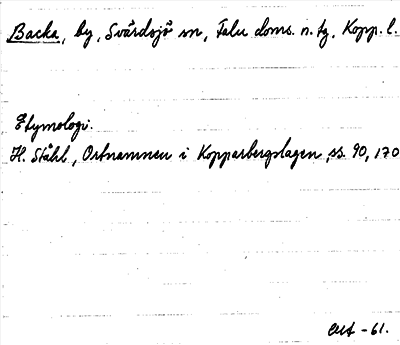 Backa, by, Svärdsjö sn, Falu doms. n. tg, Kopp. l.
Etymologi:
H. Ståhl, Ortnamnen i Kopparbergslagen, ss. 90, 170
-61.